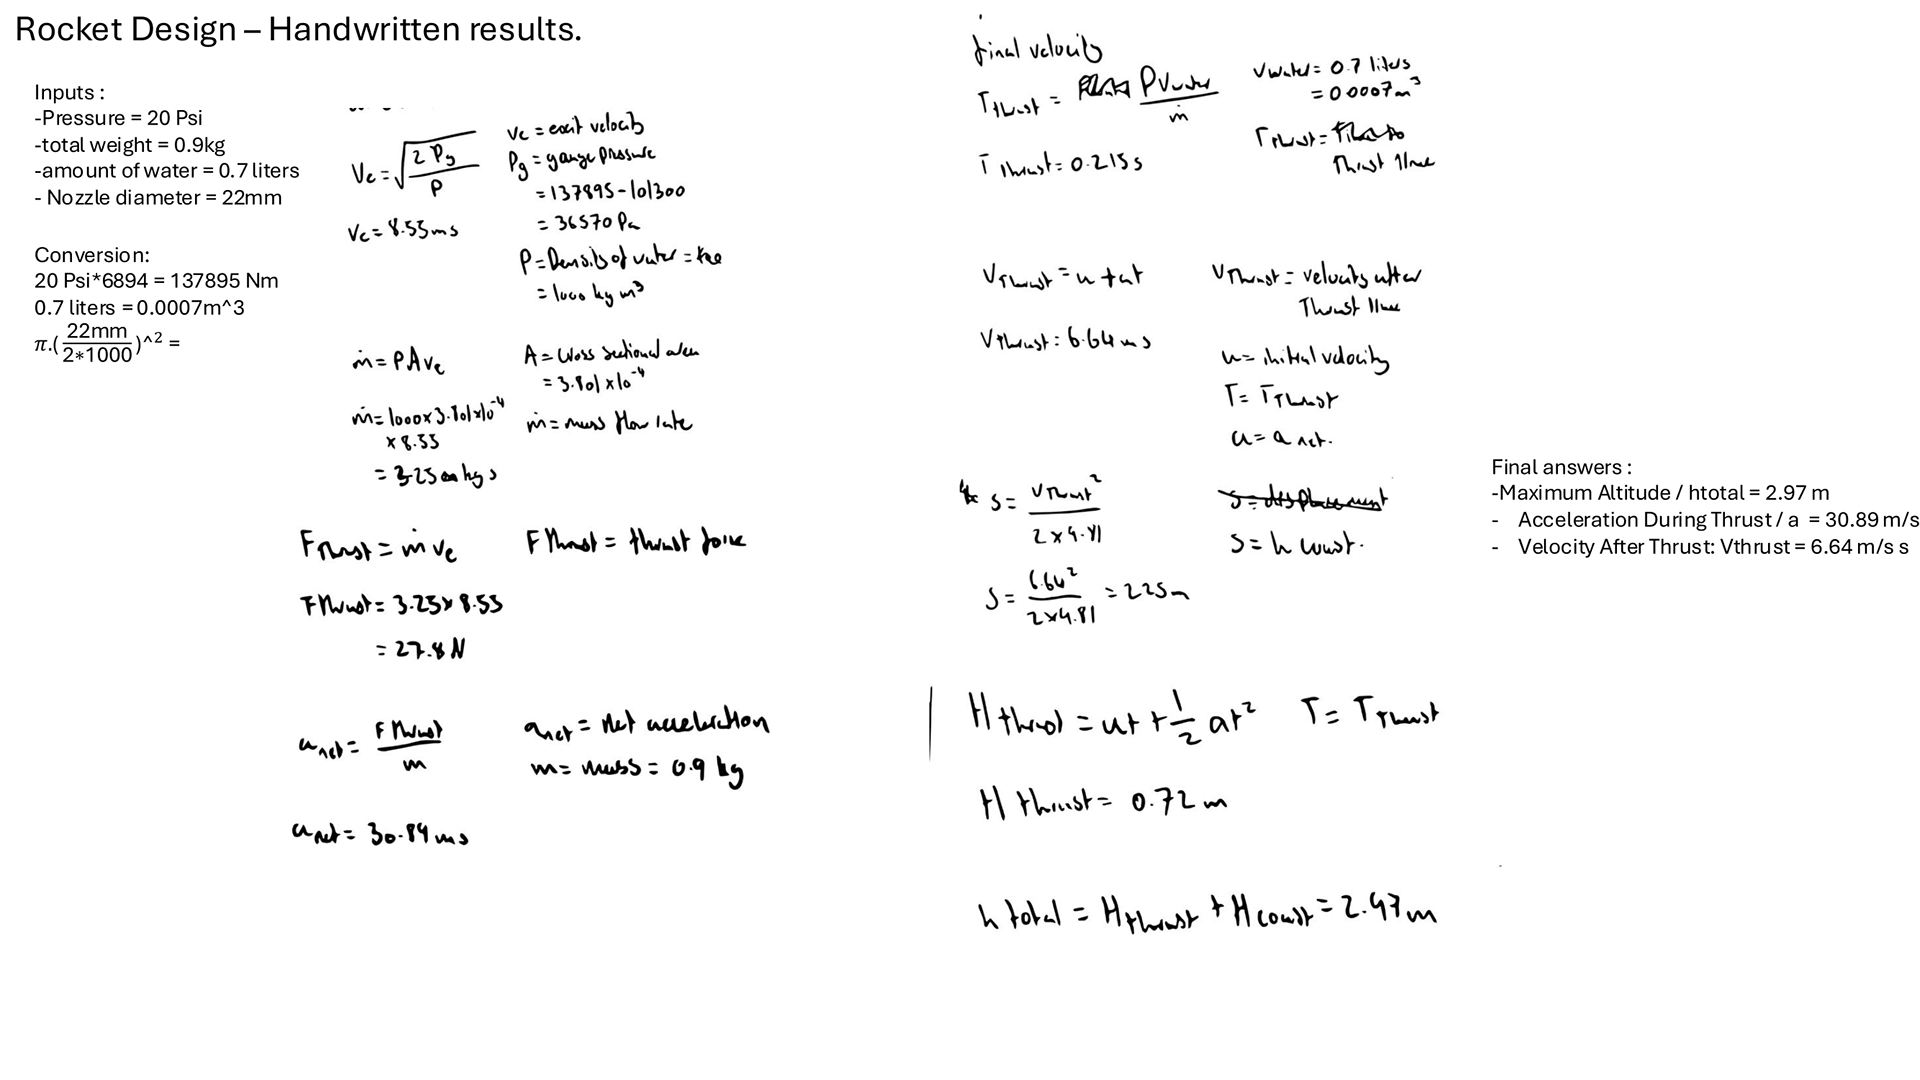 Rocket Design – Handwritten results.
Inputs :
-Pressure = 20 Psi
-total weight = 0.9kg
-amount of water = 0.7 liters
- Nozzle diameter = 22mm
Conversion:
20 Psi*6894 = 137895 Nm
0.7 liters = 0.0007m^3
π.(22mm/2*1000)^2 =
Ve = √(2Pg/P)
Ve = 8.55ms
Ve = exit velocity
Pg = gauge pressure
= 137895-101300
= 36570 Pa
P = Density of water =
= 1000 kg m³
ṁ = PAve
ṁ = 1000 x 3.801x10⁻⁴
x 8.55
= 3.25 kg s
A = cross sectional area
= 3.801 x 10⁻⁴
ṁ = mass flow rate
FThrust = ṁ ve
FThrust = thrust force
FThrust = 3.25 x 8.55
= 27.8 N
anet = FThrust/m
anet = Net acceleration
m = mass = 0.9 kg
anet = 30.89 ms
final velocity
TThrust = PVwater/ṁ
Vwater = 0.7 liters
= 0.0007m³
TThrust =
Thrust time
TThrust = 0.215 s
VThrust = u + at
VThrust = velocity after
Thrust time
VThrust = 6.64 ms
u = initial velocity
T = TThrust
a = a net.
S = VThrust²/2x9.81
S = displacement
S = h coast.
S = 6.64²/2x9.81 = 2.25m
Hthrust = ut + 1/2 at²
T = TThrust
H thrust = 0.72 m
h total = Hthrust + Hcoast = 2.97m
Final answers :
-Maximum Altitude / htotal = 2.97 m
- Acceleration During Thrust / a = 30.89 m/s
- Velocity After Thrust: Vthrust = 6.64 m/s s